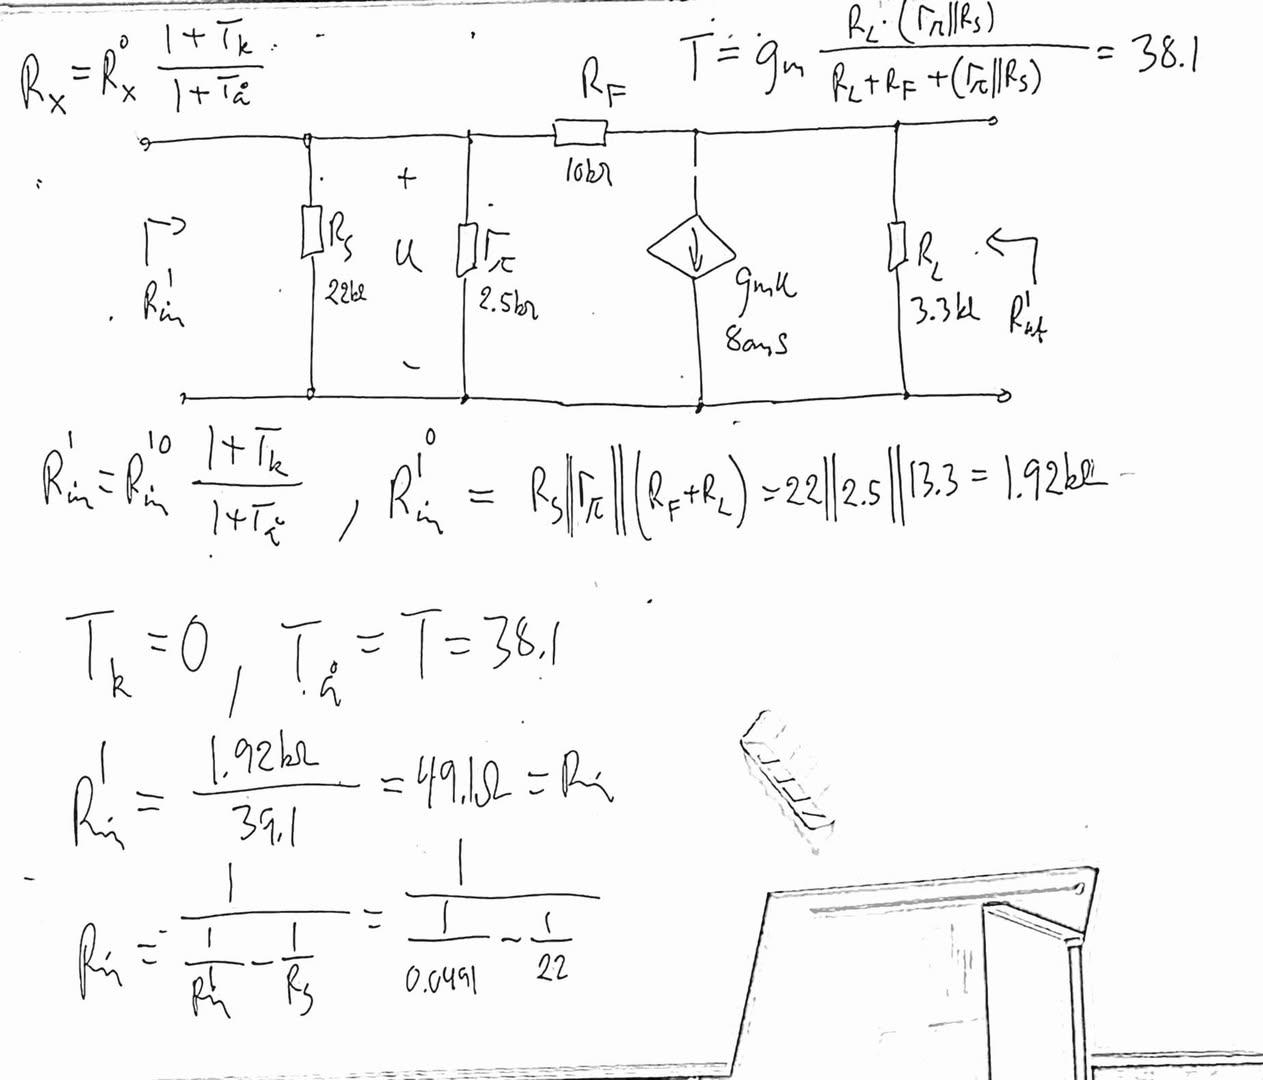 R_x = R_x^0 (1+T_k)/(1+T_å)
T = g_m (R_L·(r_π||R_S))/(R_L+R_F+(r_π||R_S)) = 38.1
R_F
10kΩ
+
u
-
R_S
22kΩ
r_π
2.5kΩ
g_m u
80mS
R_L
3.3kΩ
R_in'
R_ut'
R_in' = R_in'^0 (1+T_k)/(1+T_å) , R_in'^0 = R_S||r_π||(R_F+R_L) = 22||2.5||13.3 = 1.92kΩ
T_k = 0 , T_å = T = 38.1
R_in' = 1.92kΩ/39.1 = 49.1Ω = R_in
R_in = 1/(1/R_in' - 1/R_S) = 1/(1/0.0491 - 1/22)